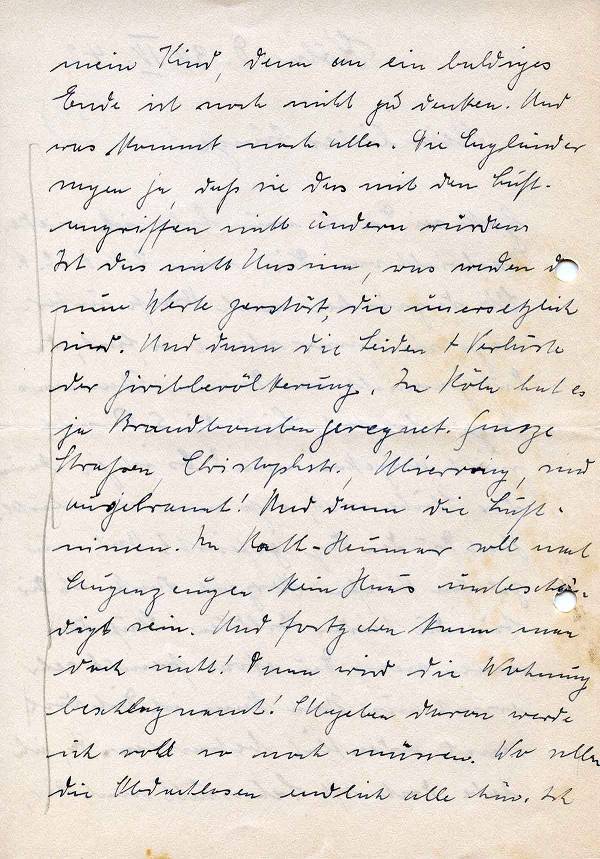 mein Kind, denn an ein baldiges
Ende ist noch nicht zu denken. Und
was kommt noch alles. Die Engländer
sagen ja, daß sie das mit den Luft-
angriffen nicht ändern würden
Ist das nicht Unsinn, was werden da
für Werte zerstört, die unersetzlich
sind. Und dann die Leiden + Verluste
der Zivilbevölkerung. In Köln hat es
ja Brandbomben geregnet. Ganze
Straßen, Christophstr., Ubierring, sind
ausgebrannt! Und dann die Luft-
minen. In Rath-Heumar soll nach
Augenzeugen kein Haus unbeschä-
digt sein. Und fortgehen kann man
doch nicht! Dann wird die Wohnung
beschlagnamt! Abgeben davon werde
ich wohl so noch müssen. Wo sollen
die Obdachlosen endlich alle hin. Ich